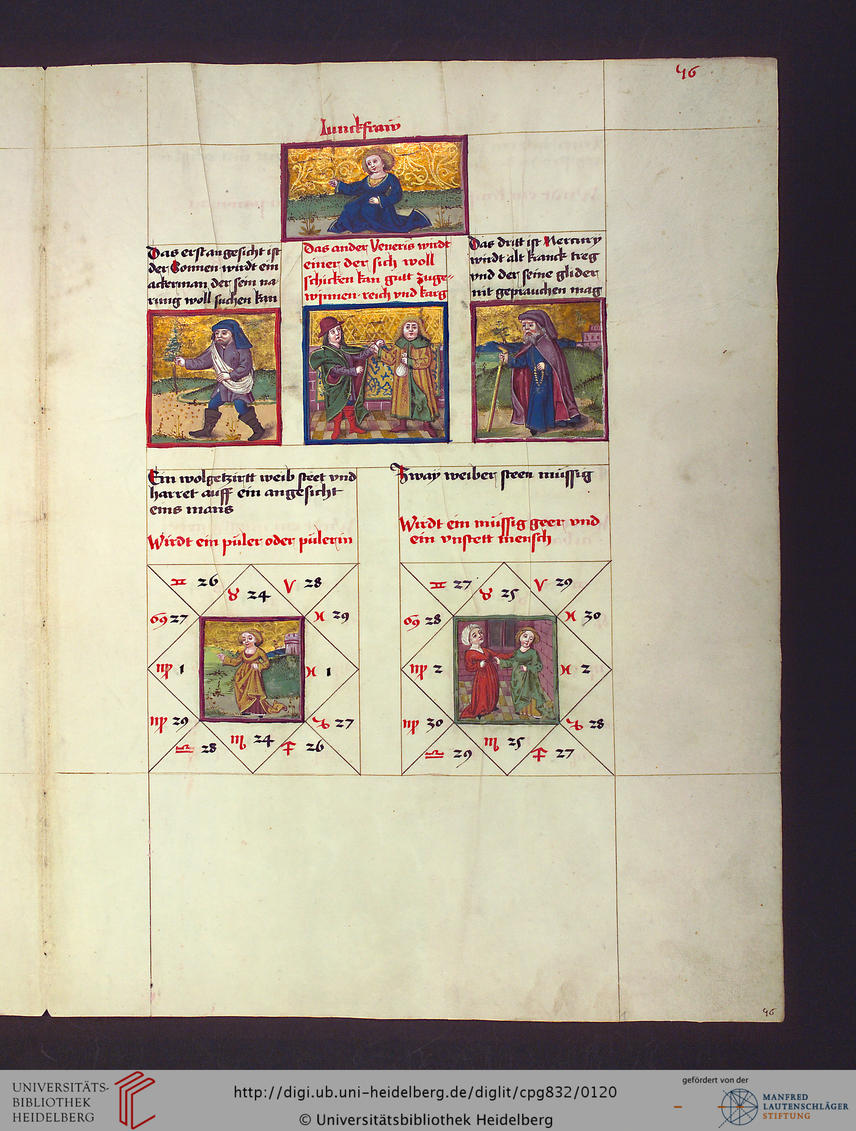 46
Junckfraw
Das erst angesicht ist
der Sonnen wirdt ein
ackerman der sein na
rung woll suchen kan
das ander Veneris wirdt
einer der sich woll
schicken kan gutt zuge-
winnen reich vnd karg
Das dritt ist Mercury
wirdt alt kranck treg
vnd der seine glider
nit geprauchen mag
Ein wolgetzirtt weib steet vnd
harret auff ein angesicht
eins mans
Wirdt ein puler oder pulerin
Zway weiber steen müssig
Wirdt ein müssig geer vnd
ein vnstett mensch
♊ 26
♉ 24
♈ 28
♋ 27
♓ 29
♍ 1
♓ 1
♍ 29
♑ 27
♎ 28
♏ 24
♐ 26
♊ 27
♉ 25
♈ 29
♋ 28
♓ 30
♍ 2
♓ 2
♍ 30
♑ 28
♎ 29
♏ 25
♐ 27
46
UNIVERSITÄTS-
BIBLIOTHEK
HEIDELBERG
http://digi.ub.uni-heidelberg.de/diglit/cpg832/0120
© Universitätsbibliothek Heidelberg
gefördert von der
MANFRED
LAUTENSCHLÄGER
STIFTUNG